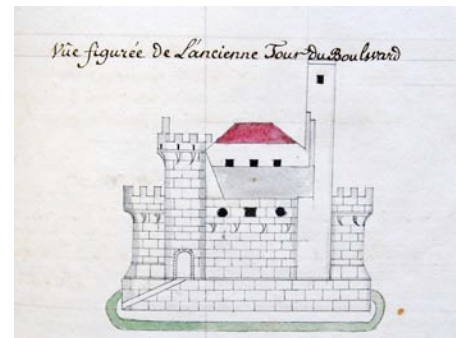 Vüe figurée De L'ancienne Tour du Boulevard